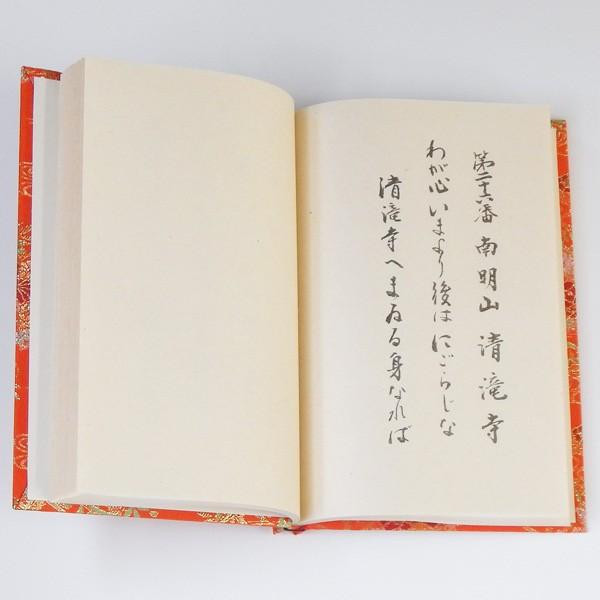 第二十六番 南明山 清滝寺
わが心いまより後はにごらじな
清滝寺へまゐる身なれば